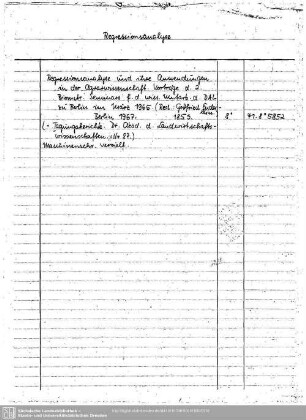 Regressionsanalyse
Regressionsanalyse und ihre Anwendungen
in der Agrarwissenschaft. Vorträge d. 2.
Biometr. Seminars f. d. wiss. Mitarb. d. DAL
zu Berlin im März 1965 (Red. Gottfried
Berlin 1967. 185 S. 8° 71.8°5852
(= Tagungsberichte. Dt. Akad. d. Landwirtschafts-
wissenschaften. Nr. 87.)
Maschinenschr. vervielf.
Sächsische Landesbibliothek -
Staats- und Universitätsbibliothek Dresden